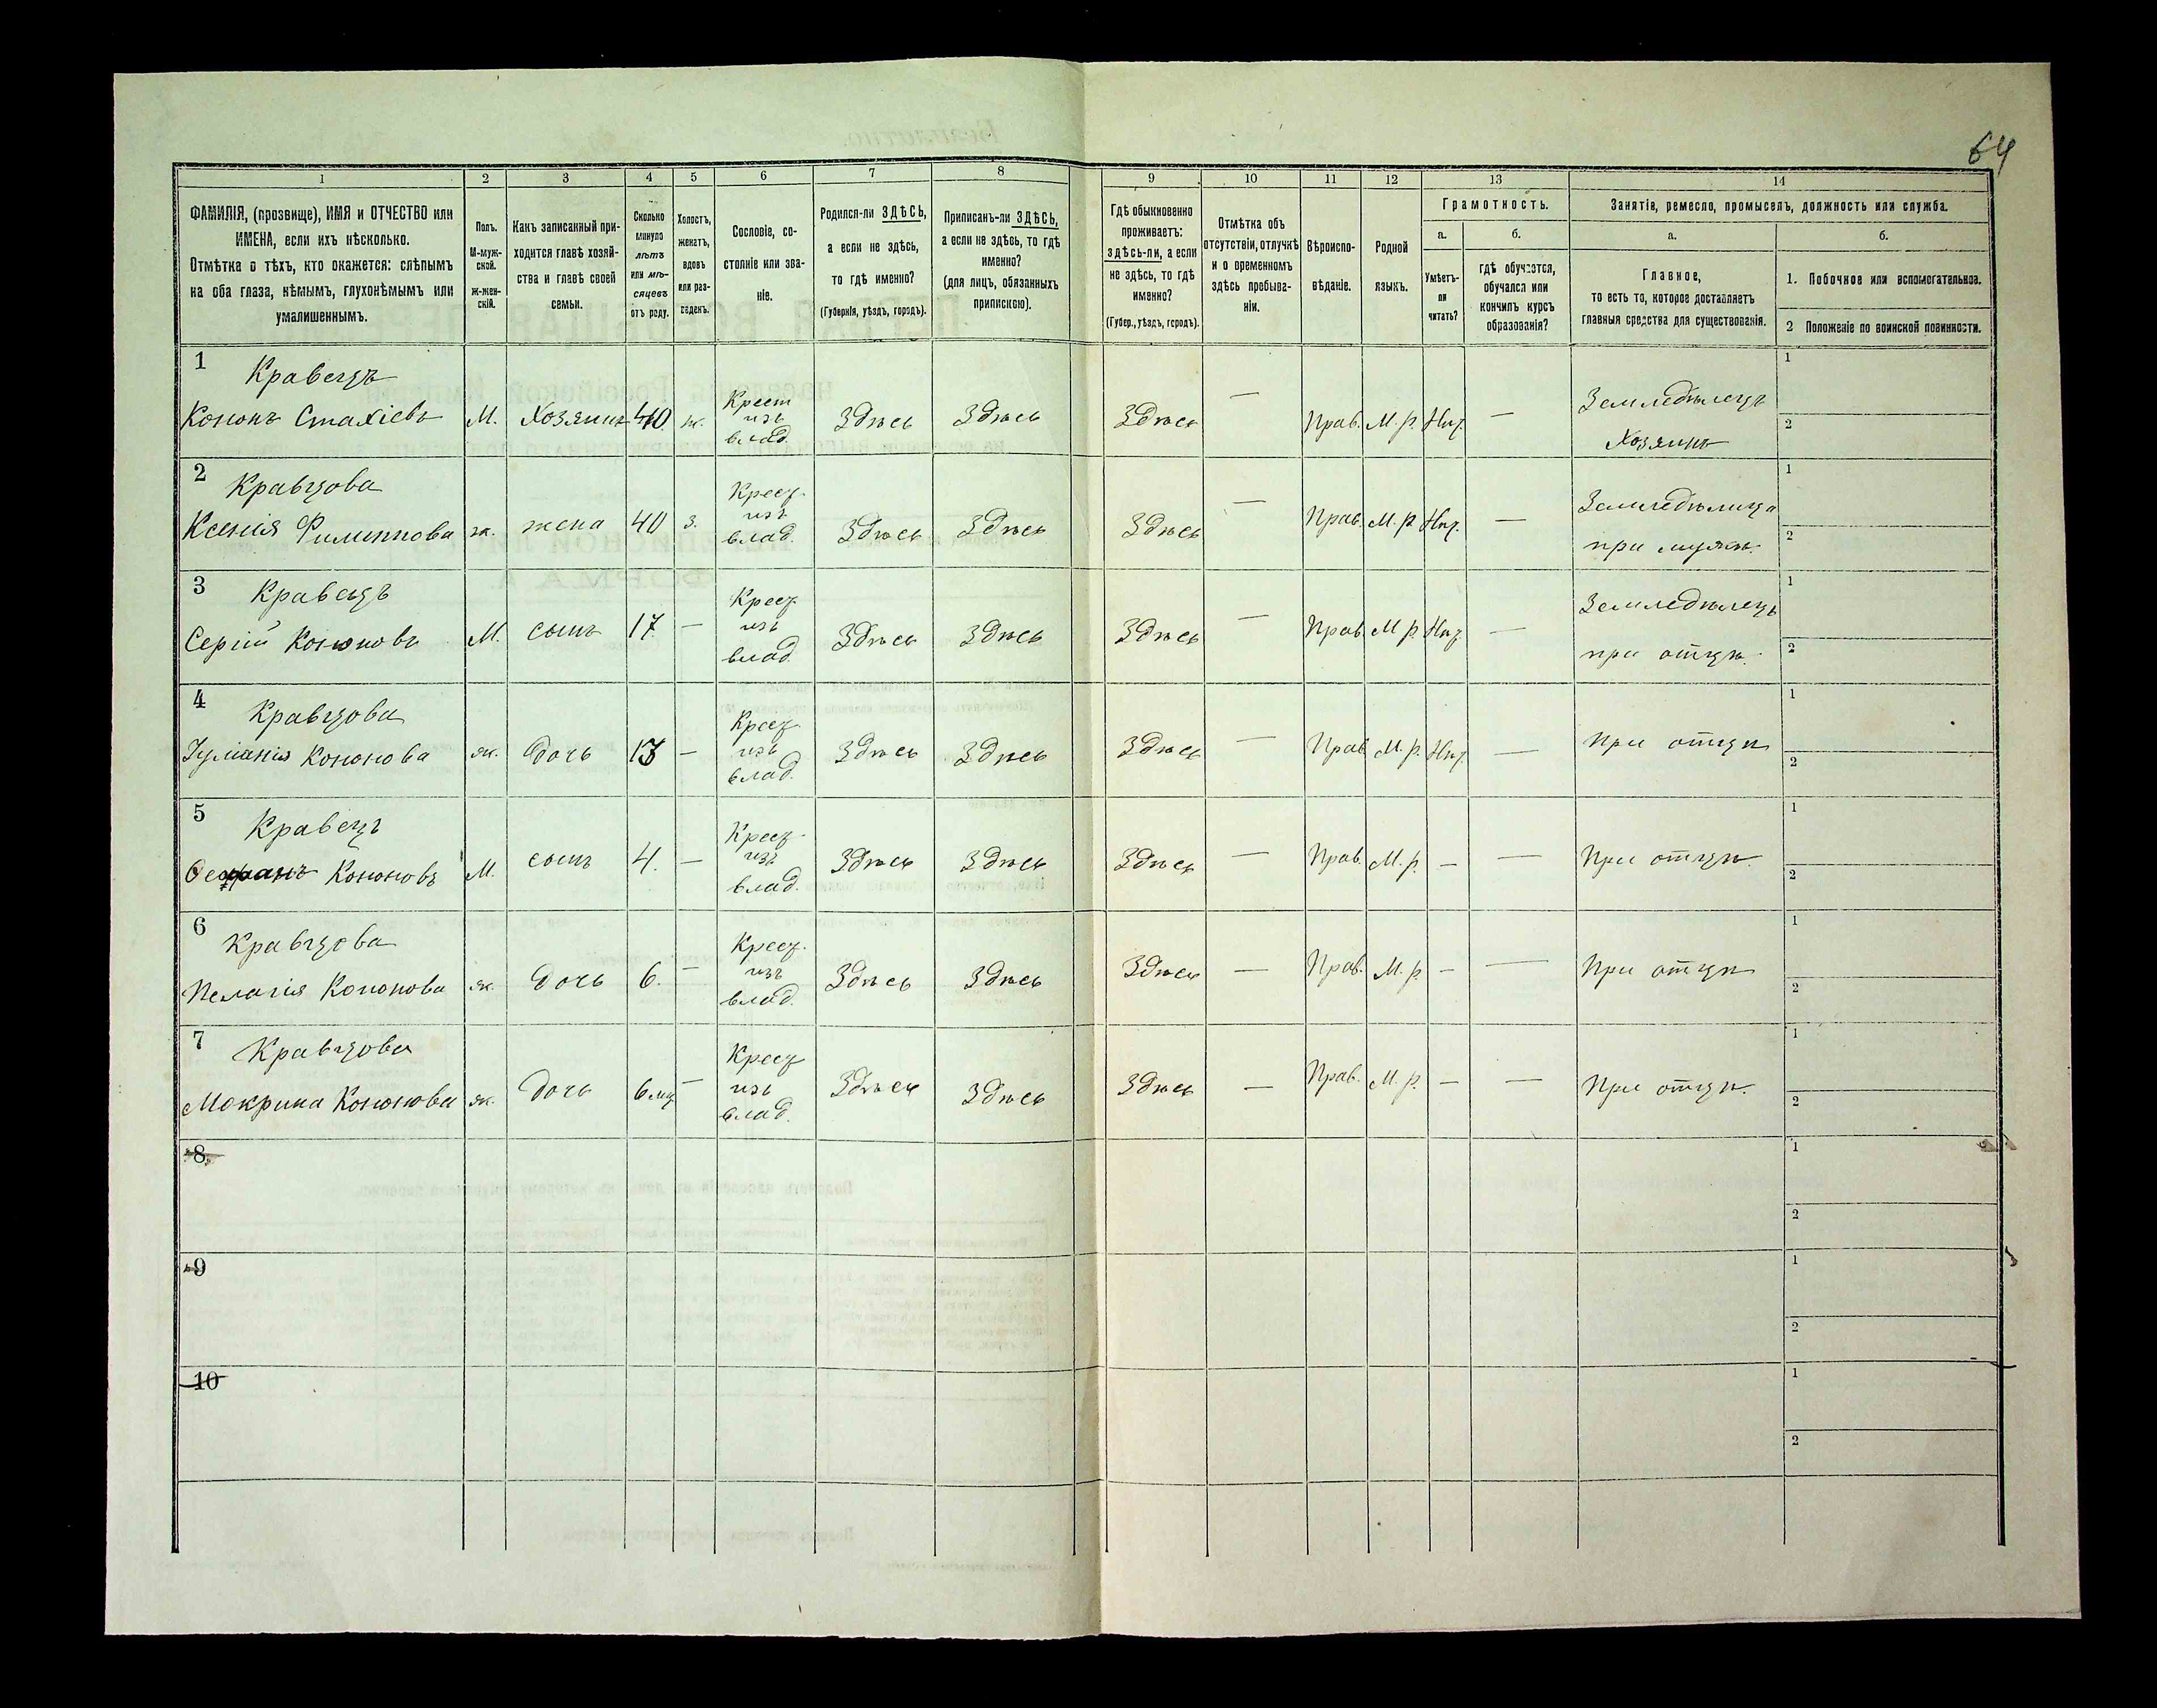 64
1 2 3 4 5 6 7 8 9 10 11 12 13 14
ФАМИЛІЯ, (прозвище), ИМЯ и ОТЧЕСТВО или
ИМЕНА, если ихъ нѣсколько.
Отмѣтка о тѣхъ, кто окажется: слѣпымъ
на оба глаза, нѣмымъ, глухонѣмымъ или
умалишеннымъ.
Полъ.
М-муж-
ской.
Ж-жен-
скій.
Какъ записанный при-
ходится главѣ хозяй-
ства и главѣ своей
семьи.
Сколько
минуло
лѣтъ
или мѣ-
сяцевъ
отъ роду.
Холостъ,
женатъ,
вдовъ
или раз-
веденъ.
Сословіе, со-
стояніе или зва-
ніе.
Родился-ли ЗДѢСЬ,
а если не здѣсь,
то гдѣ именно?
(Губернія, уѣздъ, городъ).
Приписанъ-ли ЗДѢСЬ,
а если не здѣсь, то гдѣ
именно?
(для лицъ, обязанныхъ
припискою).
Гдѣ обыкновенно
проживаетъ:
здѣсь-ли, а если
не здѣсь, то гдѣ
именно?
(Губер., уѣздъ, городъ).
Отмѣтка объ
отсутствіи, отлучкѣ
и о временномъ
здѣсь пребыва-
ніи.
Вѣроиспо-
вѣданіе.
Родной
языкъ.
Грамотность.
а.
Умѣетъ-
ли
читать?
б.
гдѣ обучается,
обучался или
кончилъ курсъ
образованія?
Занятіе, ремесло, промыселъ, должность или служба.
а.
Главное,
то есть то, которое доставляетъ
главныя средства для существованія.
б.
1. Побочное или вспомогательное.
2 Положеніе по воинской повинности.
1 Кравецъ
Кононъ Стахіевъ М. Хозяинъ 40 ж. Крест изъ влад. Здѣсь Здѣсь Здѣсь — Прав. М. р. Нѣт. — Земледѣлецъ Хозяинъ 1 2
2 Кравцова
Ксенія Филиппова ж. жена 40 з. Крест. изъ влад. Здѣсь Здѣсь Здѣсь — Прав. М. р Нѣт. — Земледѣлица при мужѣ. 1 2
3 Кравецъ
Сергій Кононовъ М. сынъ 17 — Крест. изъ влад. Здѣсь Здѣсь Здѣсь — Прав. М р. Нѣт. — Земледѣлецъ при отцѣ. 1 2
4 Кравцова
Іуліанія Кононова ж. Дочь 13 — Крест. изъ влад. Здѣсь Здѣсь Здѣсь — Прав. М. р. Нѣт. — При отцѣ 1 2
5 Кравецъ
Кононовъ М. сынъ 4. — Крест. изъ влад. Здѣсь Здѣсь Здѣсь — Прав. М. р. — — При отцѣ 1 2
6 Кравцова
Пелагія Кононова ж. Дочь 6. — Крест. изъ влад. Здѣсь Здѣсь Здѣсь — Прав. М. р. — — При отцѣ 1 2
7 Кравцова
Мокрина Кононова ж. Дочь 6 мц — Крест изъ влад. Здѣсь Здѣсь Здѣсь — Прав. М. р. — — При отцѣ. 1 2
8 1 2
9 1 2
10 1 2